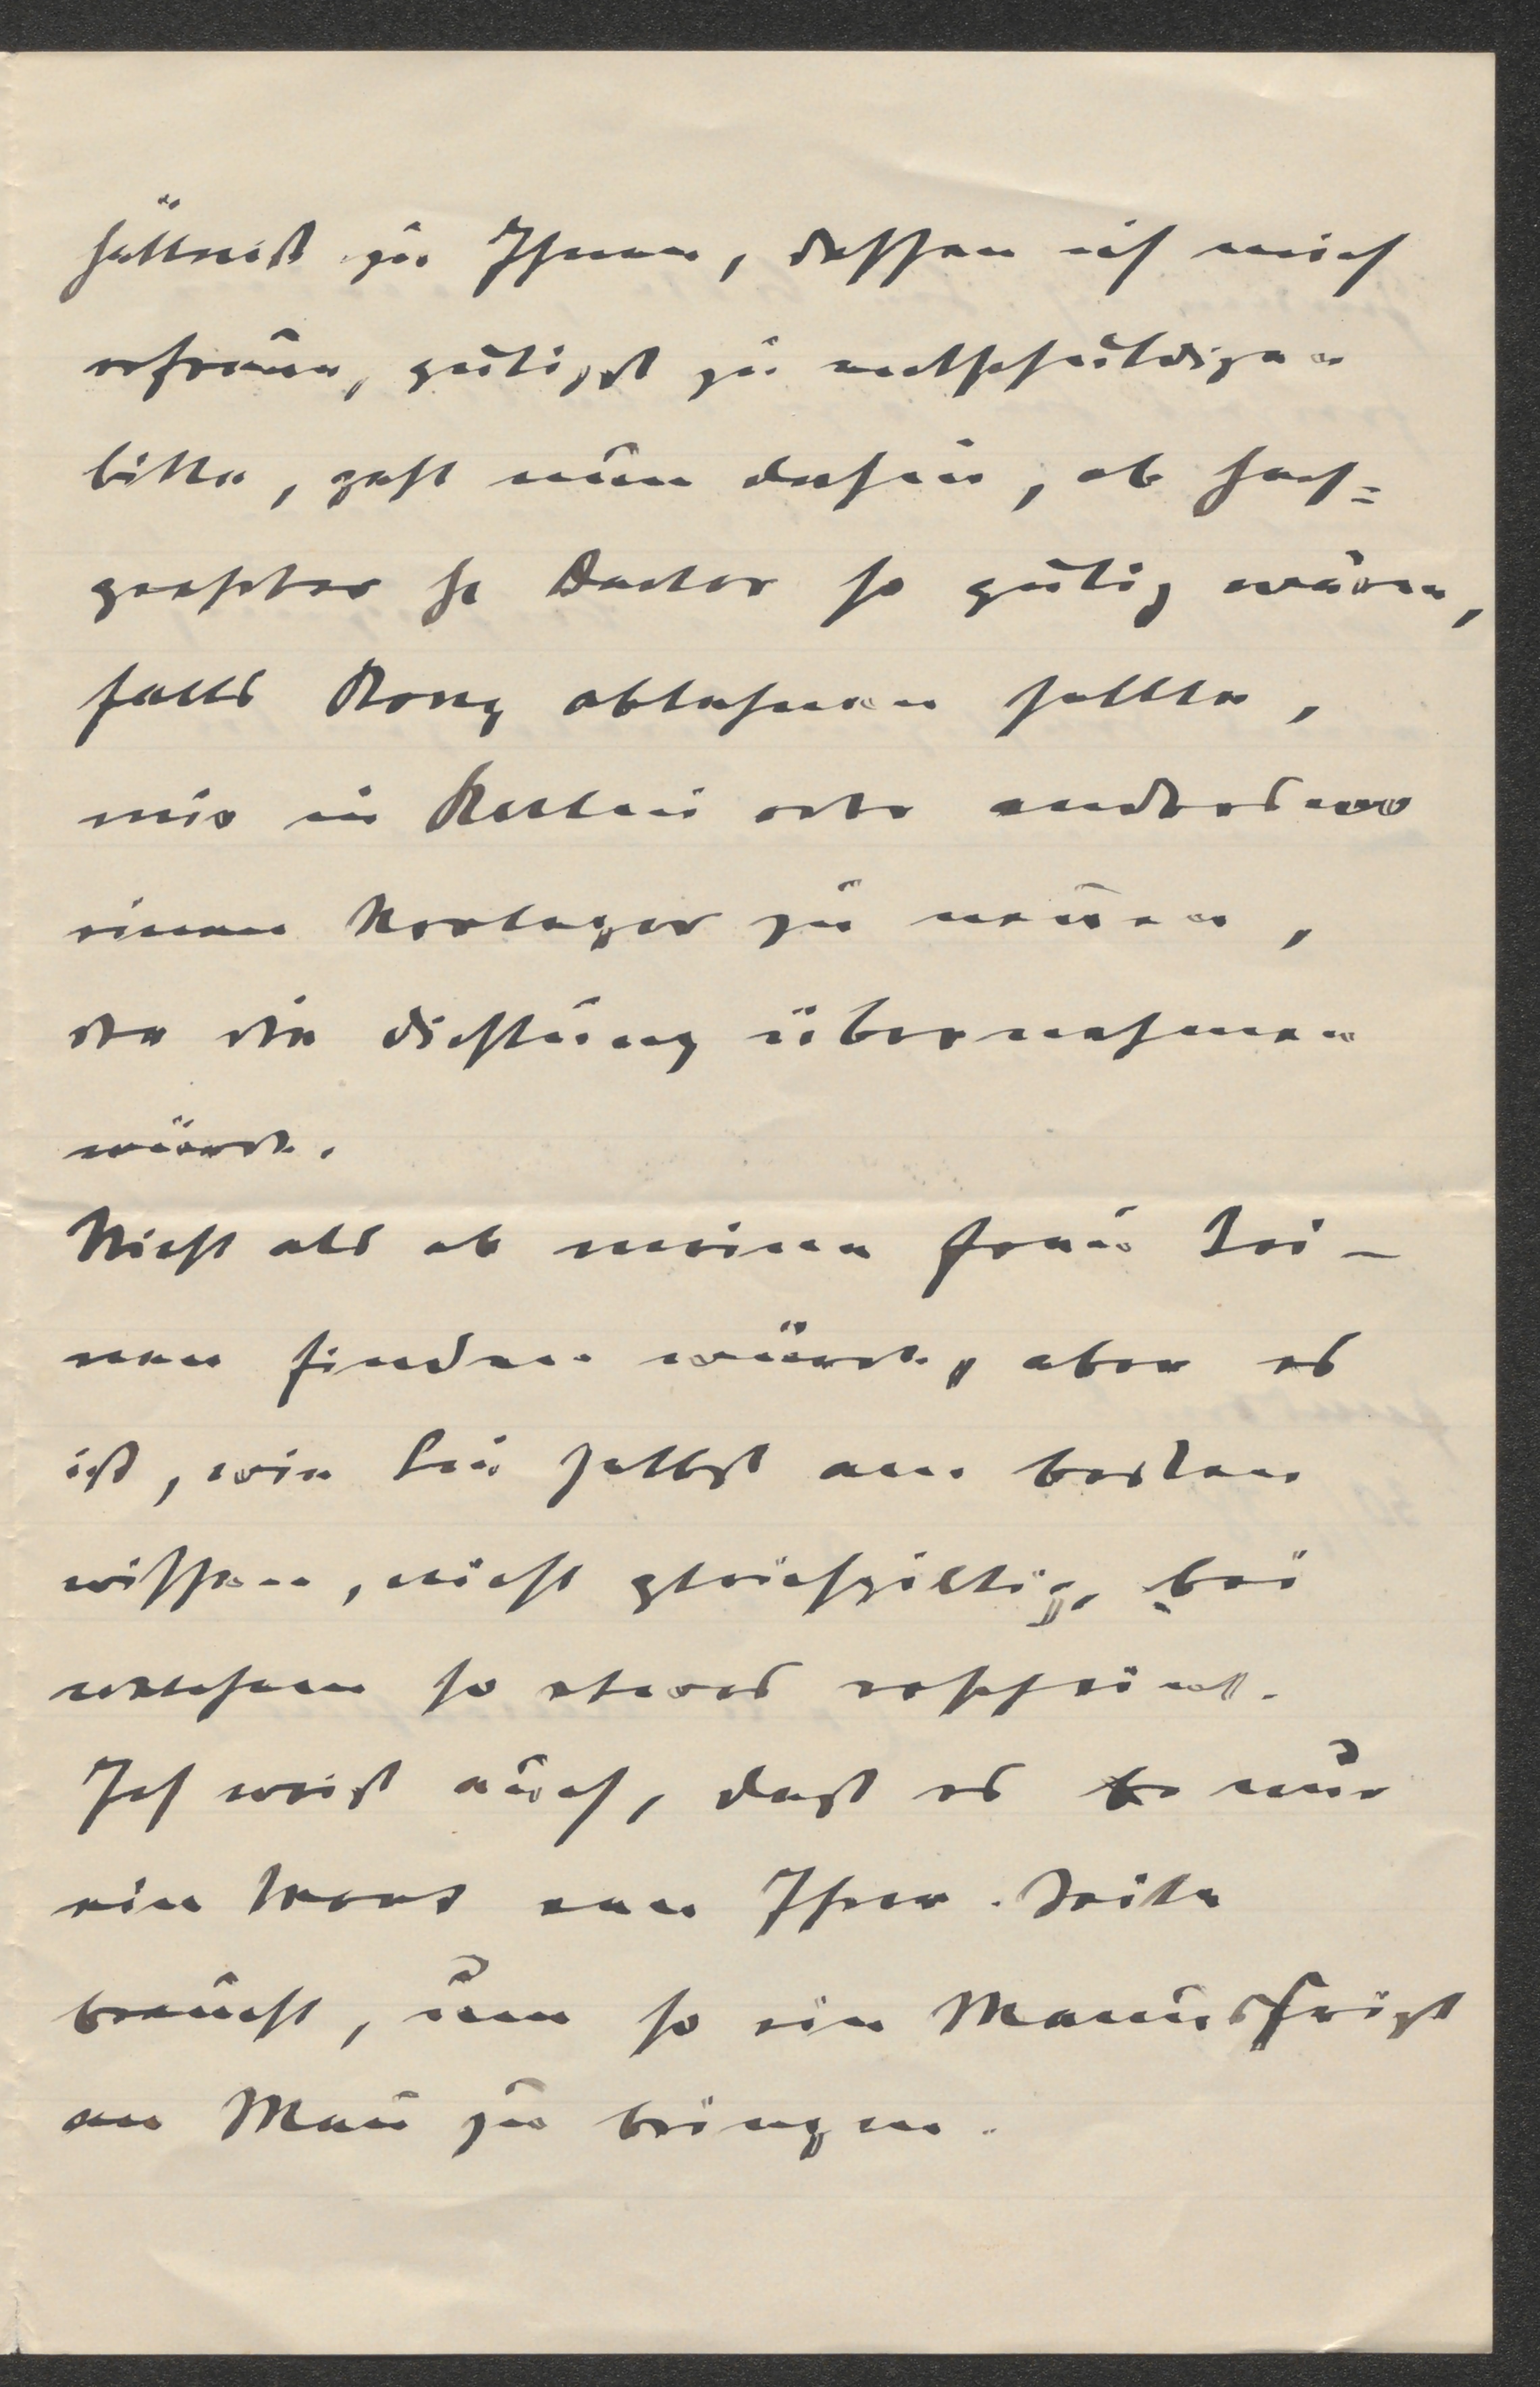 hältniß zu Ihnen, dessen ich mich
erfreue, gütigst zu entschuldigen
bitte, geht nun dahin, ob hoch=
geehrter H Doctor so gütig wären,
falls Konz ablehnen sollte,
mir in Berlin oder anderswo
einen Verleger zu nennen,
der die Dichtung übernehmen
würde.
Nicht als ob meine Frau Kei-
nen finden würde, aber es
ist, wie Sie selbst am besten
wissen, nicht gleichgiltig, bei
welchem so etwas erscheint.
Ich weiß auch, daß es nur
ein Wort von Ihrer Seite
braucht, um so ein Manuskript
an Mañ zu bringen.